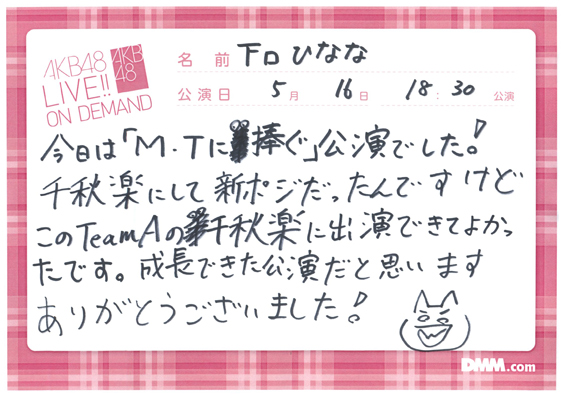 AKB48
LIVE!!
ON DEMAND
AKB
48
名前 下口ひなな
公演日 5月 16日 18:30 公演
今日は「M.Tに捧ぐ」公演でした!
千秋楽にして新ポジだったんですけど
このTeamAの千秋楽に出演できてよかっ
たです。成長できた公演だと思います
ありがとうございました!
DMM.com